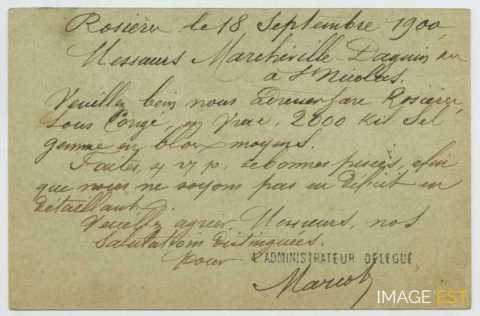 Rosières le 18 Septembre 1900
Messieurs Marcheville Daguin &
à St Nicolas.
Veuillez bien nous adresser gare Rosières,
sous Congé, en vrac, 2000 kil Sel
gemme en blocs moyens.
Faites, s. v. p. de bonnes pesées, afin
que nous ne soyons pas en déficit en
détaillant.
Veuillez agréer Messieurs, nos
salutations distinguées.
pour L'ADMINISTRATEUR DÉLÉGUÉ
IMAGE'EST